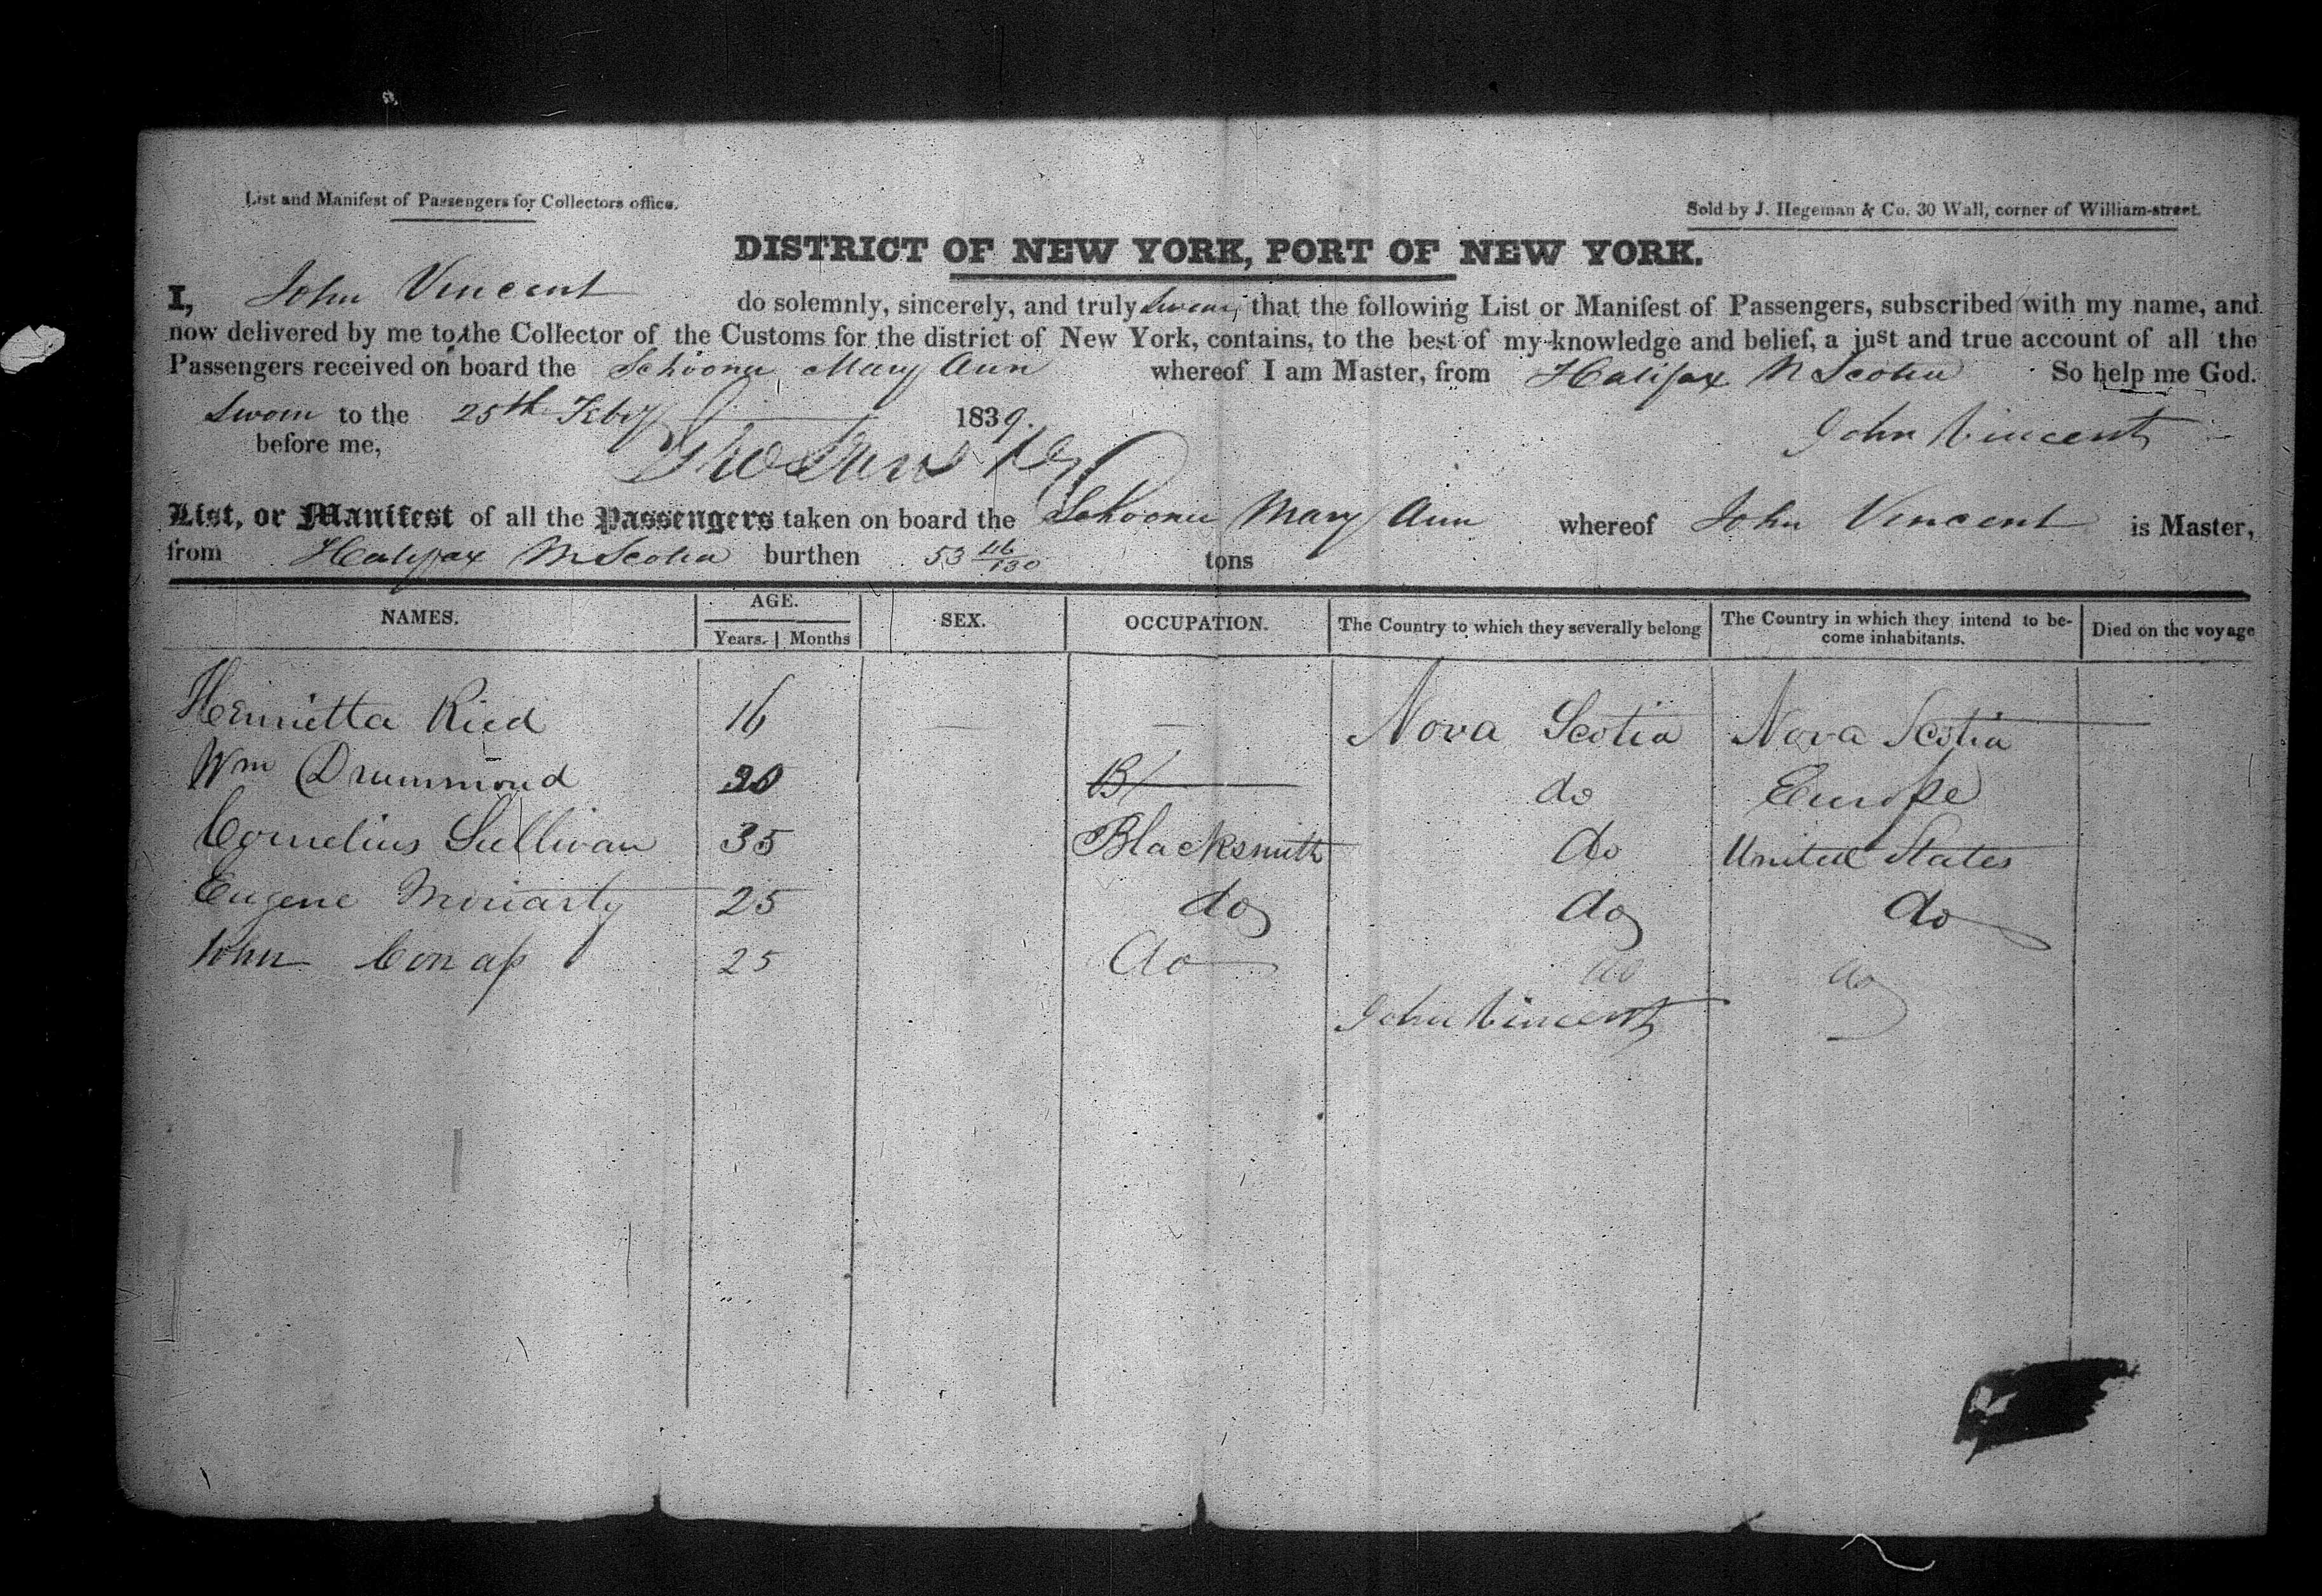 List and Manifest of Passengers for Collectors office.
Sold by J. Hegeman & Co. 30 Wall, corner of William-street.
DISTRICT OF NEW YORK, PORT OF NEW YORK.
I, John Vincent do solemnly, sincerely, and truly swear, that the following List or Manifest of Passengers, subscribed with my name, and
now delivered by me to the Collector of the Customs for the district of New York, contains, to the best of my knowledge and belief, a just and true account of all the
Passengers received on board the Schooner Mary Ann whereof I am Master, from Halifax N Scotia So help me God.
Sworn to the 25th Feby 1839.
John Vincent
before me,
List, or Manifest of all the Passengers taken on board the Schooner Mary Ann whereof John Vincent is Master,
from Halifax N Scotia burthen 53 46/130 tons
NAMES. AGE. SEX. OCCUPATION. The Country to which they severally belong The Country in which they intend to be- Died on the voyage
Years. Months come inhabitants.
Henrietta Ried 16 — — Nova Scotia Nova Scotia
Wm Drummond do Europe
Cornelius Sullivan 35 Blacksmith do United States
Eugene Moriarty 25 do do do
John Conap 25 do do do
John Vincent